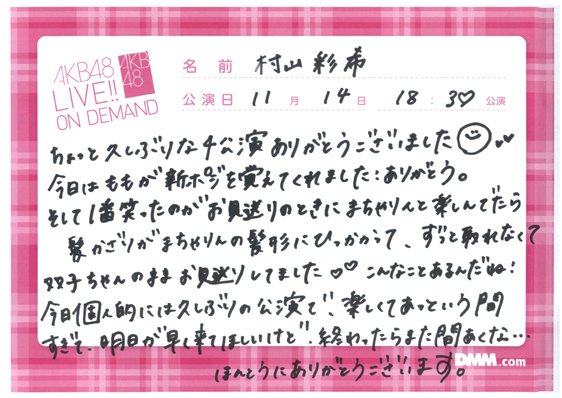 AKB48
LIVE!!
ON DEMAND
AKB
48
名前 村山彩希
公演日 11月14日 18:30公演
ちょっと久しぶりな4公演ありがとうございました
今日はももが新ポジを覚えてくれました:ありがとう。
そして1番笑ったのがお見送りのときにまちゃりんと楽しんでたら
髪かざりがまちゃりんの髪形にひっかかって、ずっと取れなくて
双子ちゃんのままお見送りしてました♡♡ こんなことあるんだね!
今日個人的には久しぶりの公演で、楽しくてあっという間
すぎて、明日が早く来てほしいけど、終わったらまた間あくな…
ほんとうにありがとうございます。
DMM.com